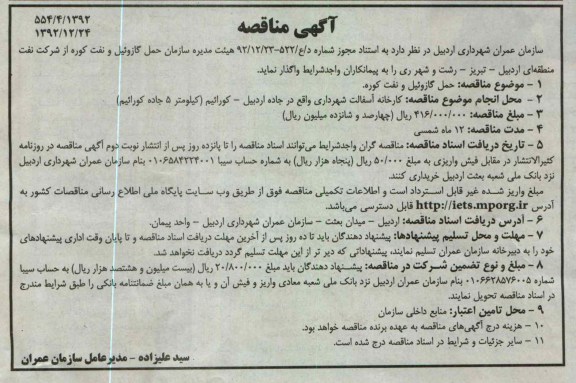 ۵۵۴/۴/۱۳۹۲
۱۳۹۲/۱۲/۲۴
آگهی مناقصه
سازمان عمران شهرداری اردبیل در نظر دارد به استناد مجوز شماره د/ع/۵۲۲-۹۲/۱۲/۲۳ هیئت مدیره سازمان حمل گازوئیل و نفت کوره از شرکت نفت
منطقه‌ای اردبیل - تبریز - رشت و شهر ری را به پیمانکاران واجدشرایط واگذار نماید.
۱ - موضوع مناقصه: حمل گازوئیل و نفت کوره.
۲ - محل انجام موضوع مناقصه: کارخانه آسفالت شهرداری واقع در جاده اردبیل - کورائیم (کیلومتر ۵ جاده کورائیم)
۳ - مبلغ مناقصه: ۴۱۶/۰۰۰/۰۰۰ ریال (چهارصد و شانزده میلیون ریال)
۴ - مدت مناقصه: ۱۲ ماه شمسی
۵ - تاریخ دریافت اسناد مناقصه: مناقصه گران واجدشرایط می‌توانند اسناد مناقصه را تا پانزده روز پس از انتشار نوبت دوم آگهی مناقصه در روزنامه
کثیرالانتشار در مقابل فیش واریزی به مبلغ ۵۰/۰۰۰ ریال (پنجاه هزار ریال) به شماره حساب سیبا ۰۱۰۶۵۸۴۲۲۴۰۰۱ بنام سازمان عمران شهرداری اردبیل
نزد بانک ملی شعبه بعثت اردبیل خریداری کنند.
مبلغ واریز شده غیر قابل استرداد است و اطلاعات تکمیلی مناقصه فوق از طریق وب سایت پایگاه ملی اطلاع رسانی مناقصات کشور به
آدرس http://iets.mporg.ir قابل دسترسی می‌باشد.
۶ - آدرس دریافت اسناد مناقصه: اردبیل - میدان بعثت - سازمان عمران شهرداری اردبیل - واحد پیمان.
۷ - مهلت و محل تسلیم پیشنهادها: پیشنهاد دهندگان باید تا ده روز پس از آخرین مهلت دریافت اسناد مناقصه و تا پایان وقت اداری پیشنهادهای
خود را به دبیرخانه سازمان عمران تسلیم نمایند، پیشنهاداتی که دیر تر از این مهلت تسلیم گردد دریافت نخواهد شد.
۸ - مبلغ و نوع تضمین شرکت در مناقصه: پیشنهاد دهندگان باید مبلغ ۲۰/۸۰۰/۰۰۰ ریال (بیست میلیون و هشتصد هزار ریال) به حساب سیبا
شماره ۰۱۰۶۶۲۸۵۷۶۰۰۵ بنام سازمان عمران اردبیل نزد بانک ملی شعبه معادی واریز و فیش آن و یا به همان مبلغ ضمانتنامه بانکی را طبق شرایط مندرج
در اسناد مناقصه تحویل نمایند.
۹ - محل تامین اعتبار: منابع داخلی سازمان
۱۰ - هزینه درج آگهی‌های مناقصه به عهده برنده مناقصه خواهد بود.
۱۱ - سایر جزئیات و شرایط در اسناد مناقصه درج شده است.
سید علیزاده - مدیرعامل سازمان عمران